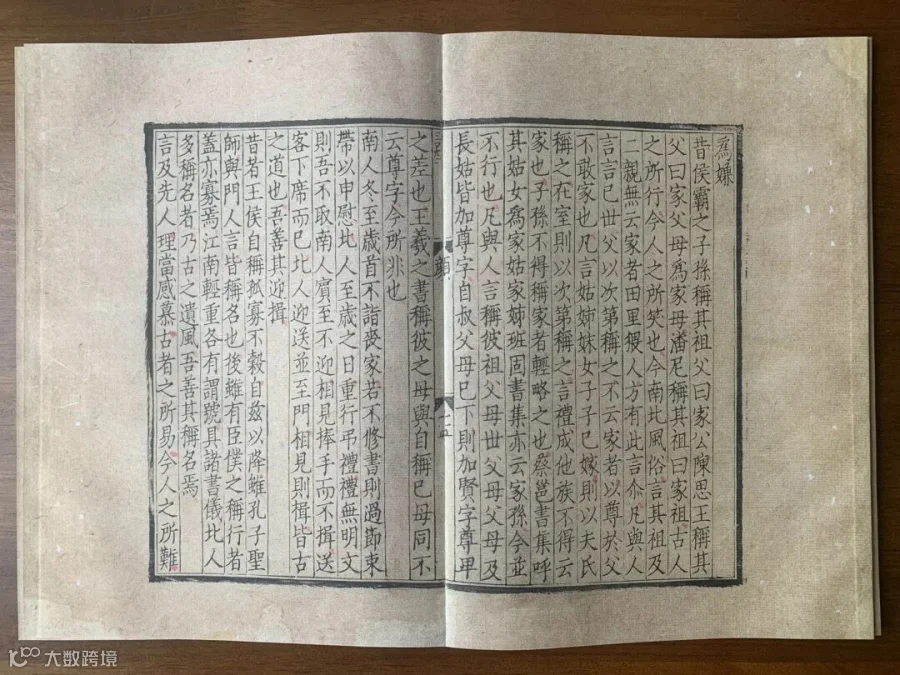 爲嫌
昔侯霸之子孫稱其祖父曰家公陳思王稱其
父曰家父母爲家母潘尼稱其祖曰家祖古人
之所行今人之所笑也今南北風俗言其祖及
二親無云家者田里猥人方有此言尒凡與人
言言已世父以次第稱之不云家者以尊於父
不敢家也凡言姑姊妹女子子已嫁則以夫氏
稱之在室則以次第稱之言禮成他族不得云
家也子孫不得稱家者輕略之也蔡邕書集呼
其姑女爲家姑家姊班固書集亦云家孫今並
不行也凡與人言稱彼祖父母世父母父母及
長姑皆加尊字自叔父母已下則加賢字尊卑
之差也王羲之書稱彼之母與自稱己母同不
云尊字今所非也
南人冬至歲首不詣喪家若不修書則過節束
帶以申慰北人至歲之日重行弔禮禮無明文
則吾不取南人賓至不迎相見捧手而不揖送
客下席而已北人迎送並至門相見則揖皆古
之道也吾善其迎揖
昔者王侯自稱孤寡不穀自茲以降雖孔子聖
師與門人言皆稱名也後雖有臣僕之稱行者
蓋亦寡焉江南輕重各有謂號具諸書儀北人
多稱名者乃古之遺風吾善其稱名焉
言及先人理當感慕古者之所易今人之所難
大数跨境